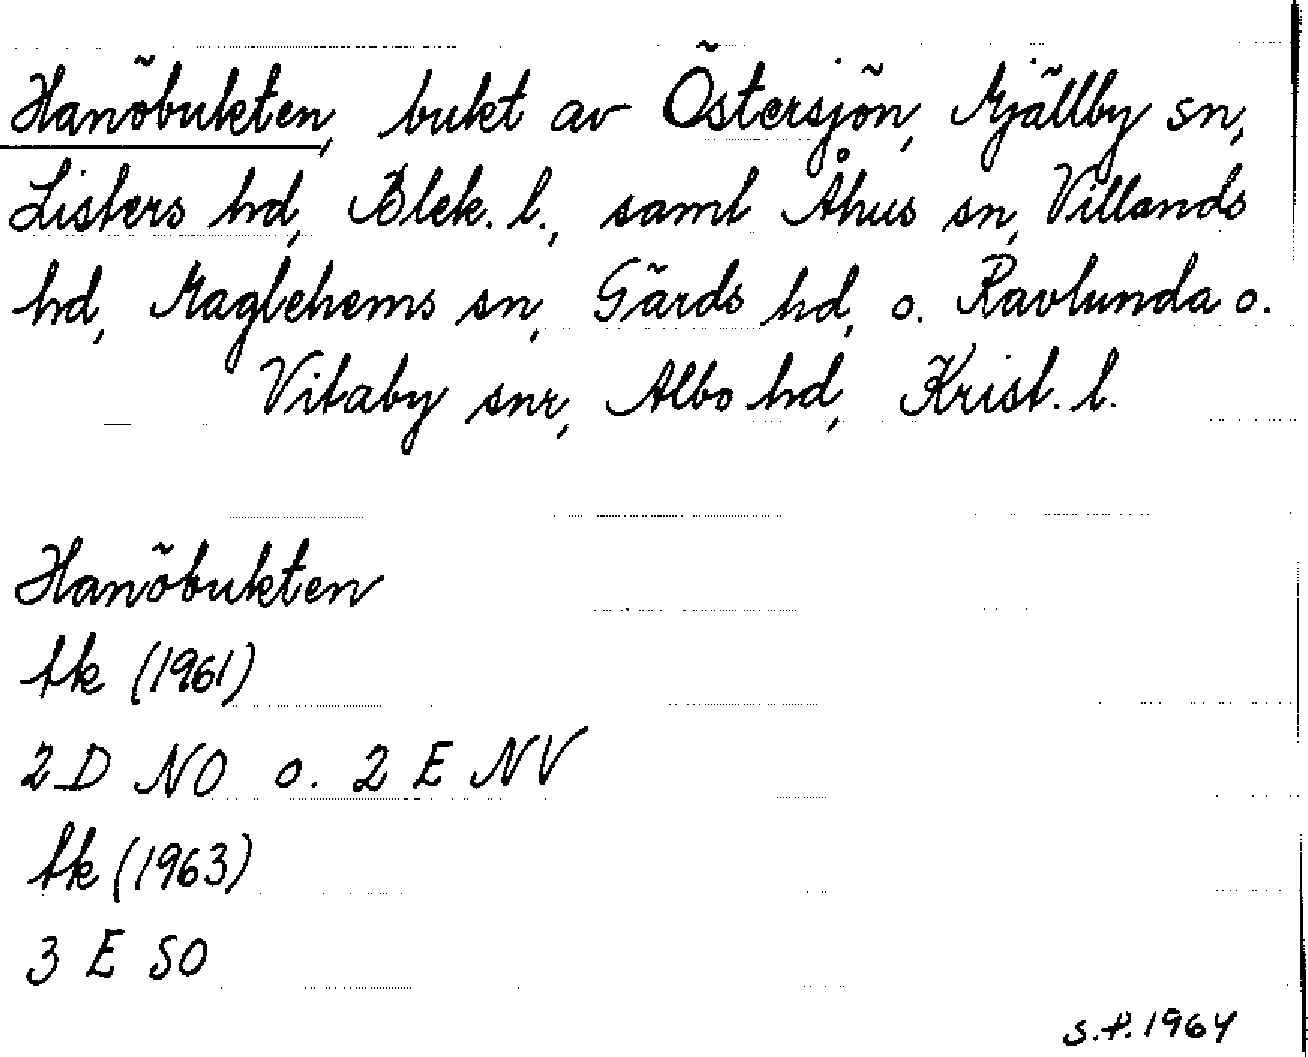 Hanöbukten, bukt av Östersjön, Mjällby sn,
Listers hd, Blek. l., samt Åhus sn, Villands
hd, Maglehems sn, Gärds hd, o. Ravlunda o.
Vitaby snr, Albo hd, Krist. l.
Hanöbukten
tk (1961)
2 D NO o. 2 E NV
tk (1963)
3 E SO
S.P. 1964